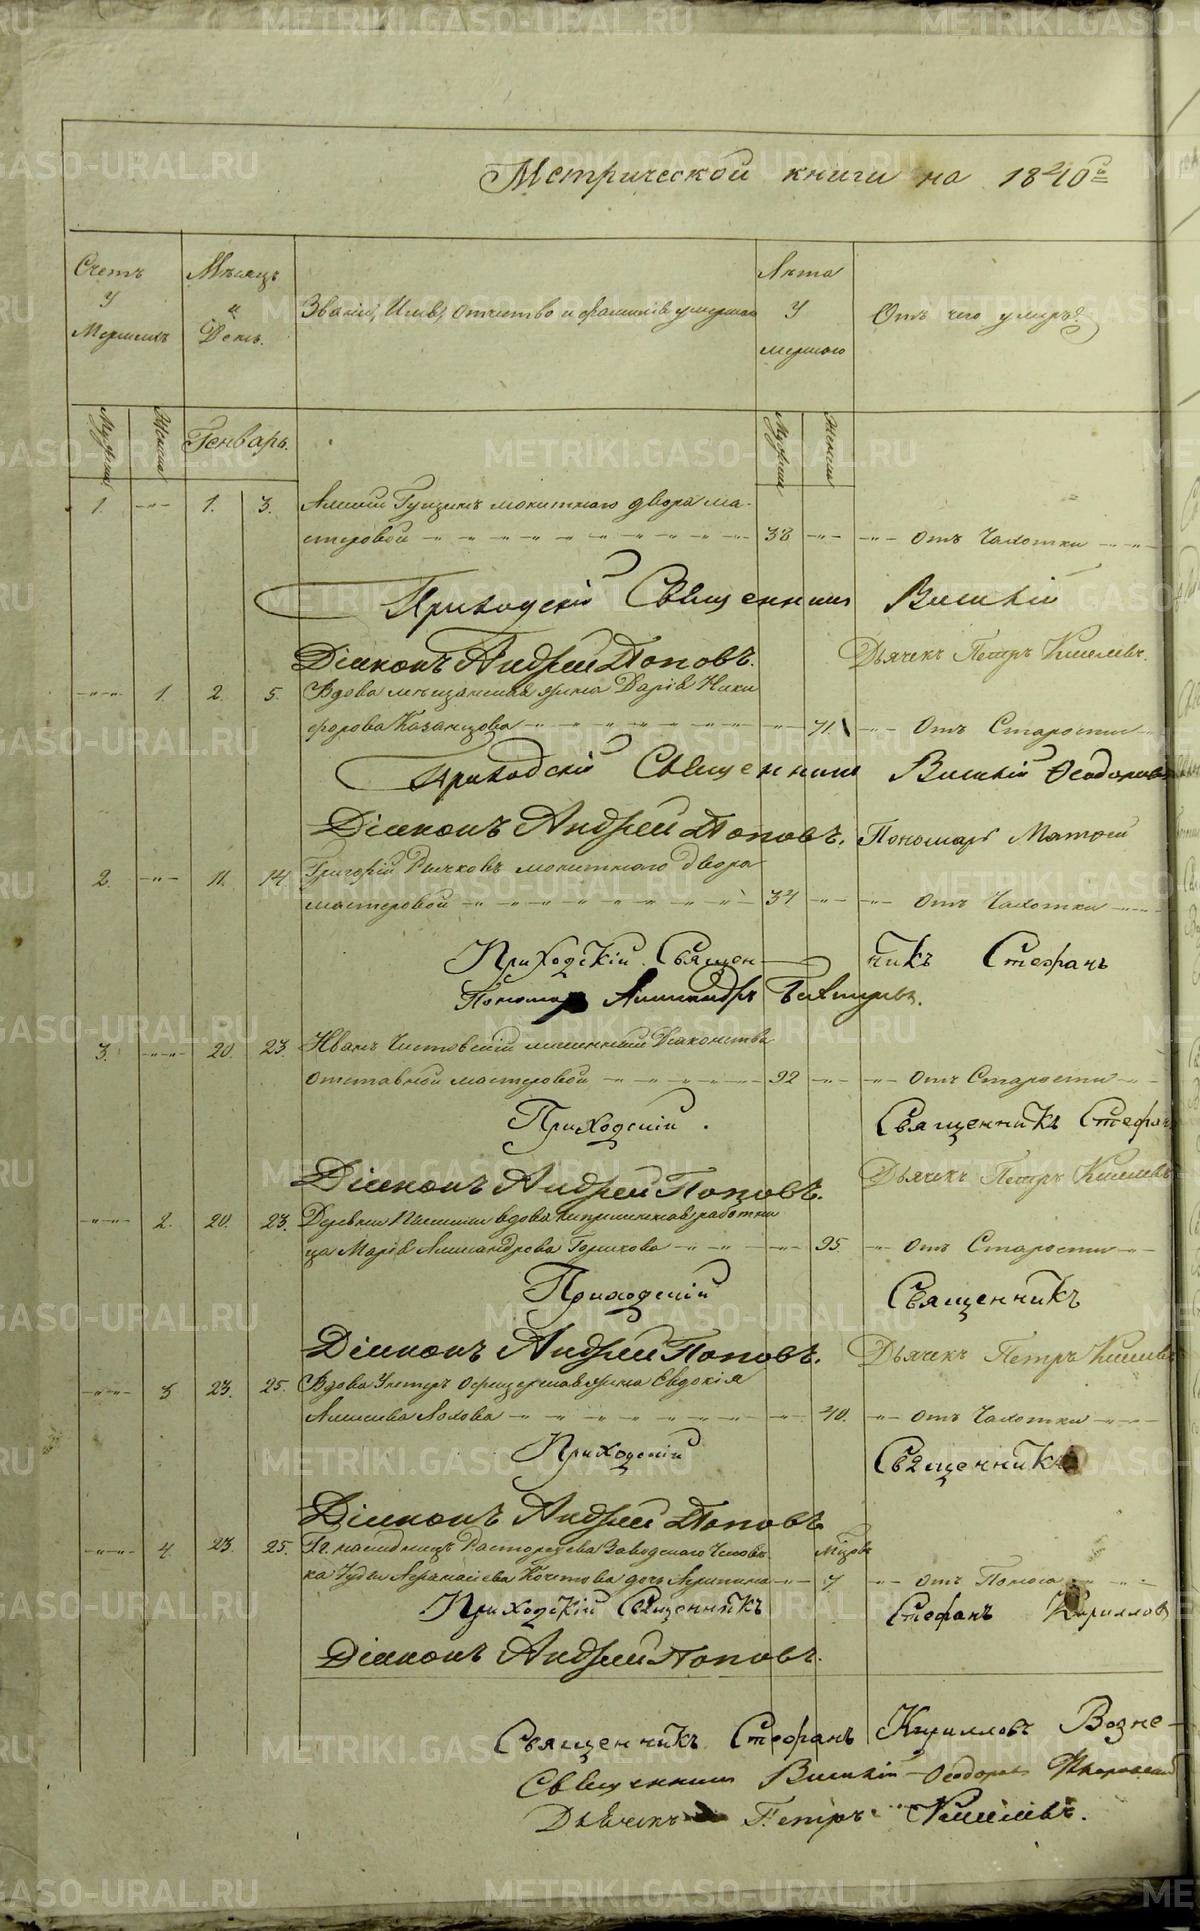 Метрической книги на 1840й
Счетъ
У
Мершихъ
Мѣсяцъ
и
День.
Званіе, Имя, отчество и фамилія умершаго
Лѣта
У
мершаго
Отъ чего умеръ?
Мужска Женска Генварь.
Мужска Женска
1. 1. 3. Алексей монетнаго двора ма-
стеровой 38 Отъ Чахотки
Приходскій Священникъ Василій
Діаконъ Андрей Поповъ. Дьячекъ Петръ Киселевъ.
1. 2. 5. Вдова мещанская жена Дарія Ники
форова Казанцова 71. Отъ Старости
Приходскій Священникъ Василій Ѳеодоровъ
Діаконъ Андрей Поповъ. Пономарь Матфей
2. 11. 14. Григорій Рычковъ монетнаго двора
мастеровой 34 Отъ Чахотки
Приходскій Священникъ Стефанъ
Пономарь Александръ
3. 20. 23. Иванъ Чистовскій
отставной мастеровой 92 Отъ Старости
Приходскій. Священникъ Стефанъ
Діаконъ Андрей Поповъ. Дьячекъ Петръ Киселевъ
2. 20. 23. Деревни вдова работни
ца Марія Александрова 95. Отъ Старости
Приходскій Священникъ
Діаконъ Андрей Поповъ. Дьячекъ Петръ Киселевъ
3 23. 25. Вдова Унтеръ Офицерская жена Евдокія
Алексеева 40. Отъ Чахотки
Приходскій Священникъ
Діаконъ Андрей Поповъ
4. 23. 25. Гг. наследницъ Расторгуева Заводскаго Челове- Месцов
ка Иуды Афанасіева Кочетова дочь Агрипина 7 Отъ Поноса
Приходскій Священникъ Стефанъ Кирилловъ
Діаконъ Андрей Поповъ.
Священникъ Стефанъ Кирилловъ Возне-
Священникъ Василій Ѳеодоровъ
Дьячекъ Петръ Киселевъ.